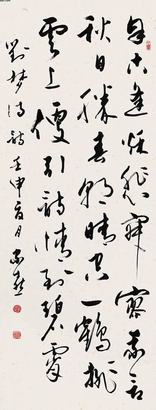 自古逢秋悲寂寥我言
秋日勝春朝晴空一鶴排
雲上便引詩情到碧霄
劉夢得詩壬申夏月